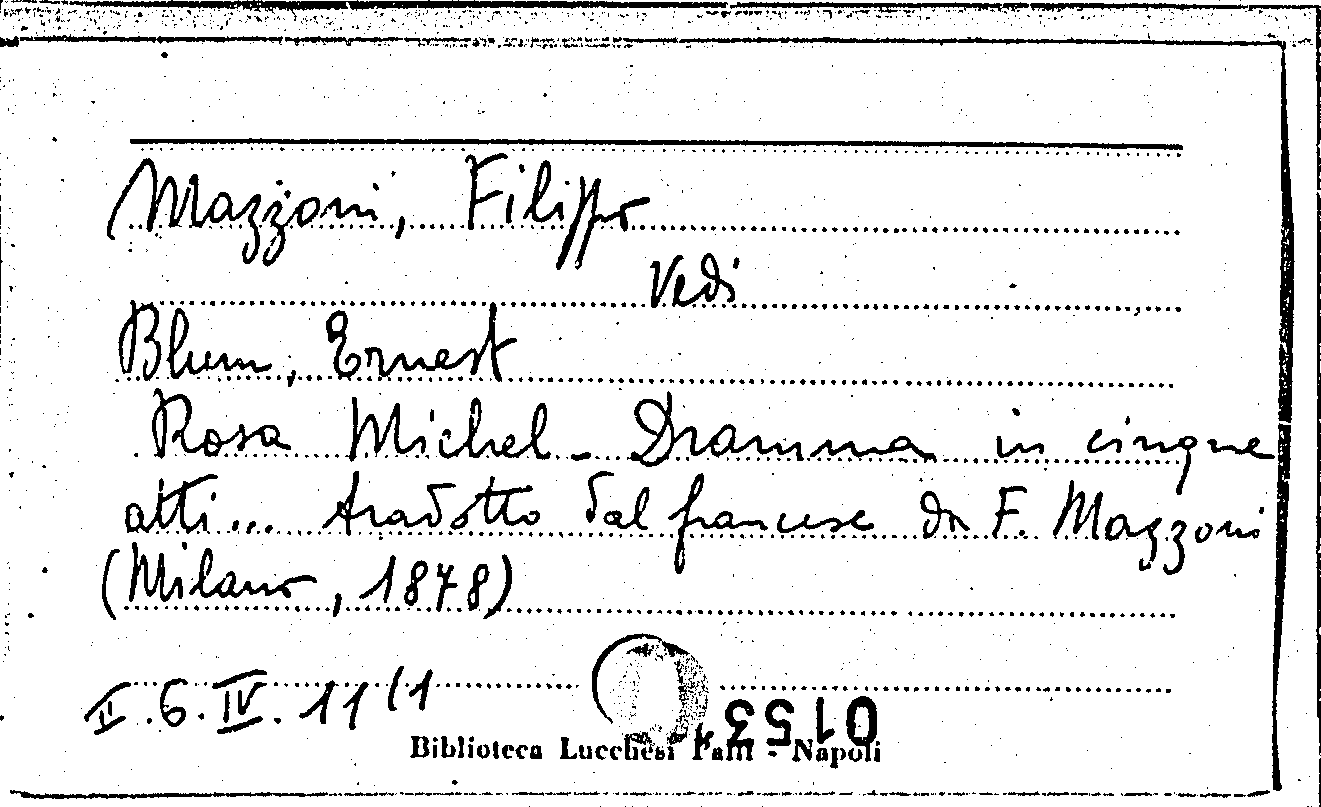 Mazzoni, Filippo
Vedi
Blum, Ernest
Rosa Michel - Dramma in cinque
atti... tradotto dal francese da F. Mazzoni
(Milano, 1878)
II.6.IV.11(1
Biblioteca Lucchesi Palli - Napoli